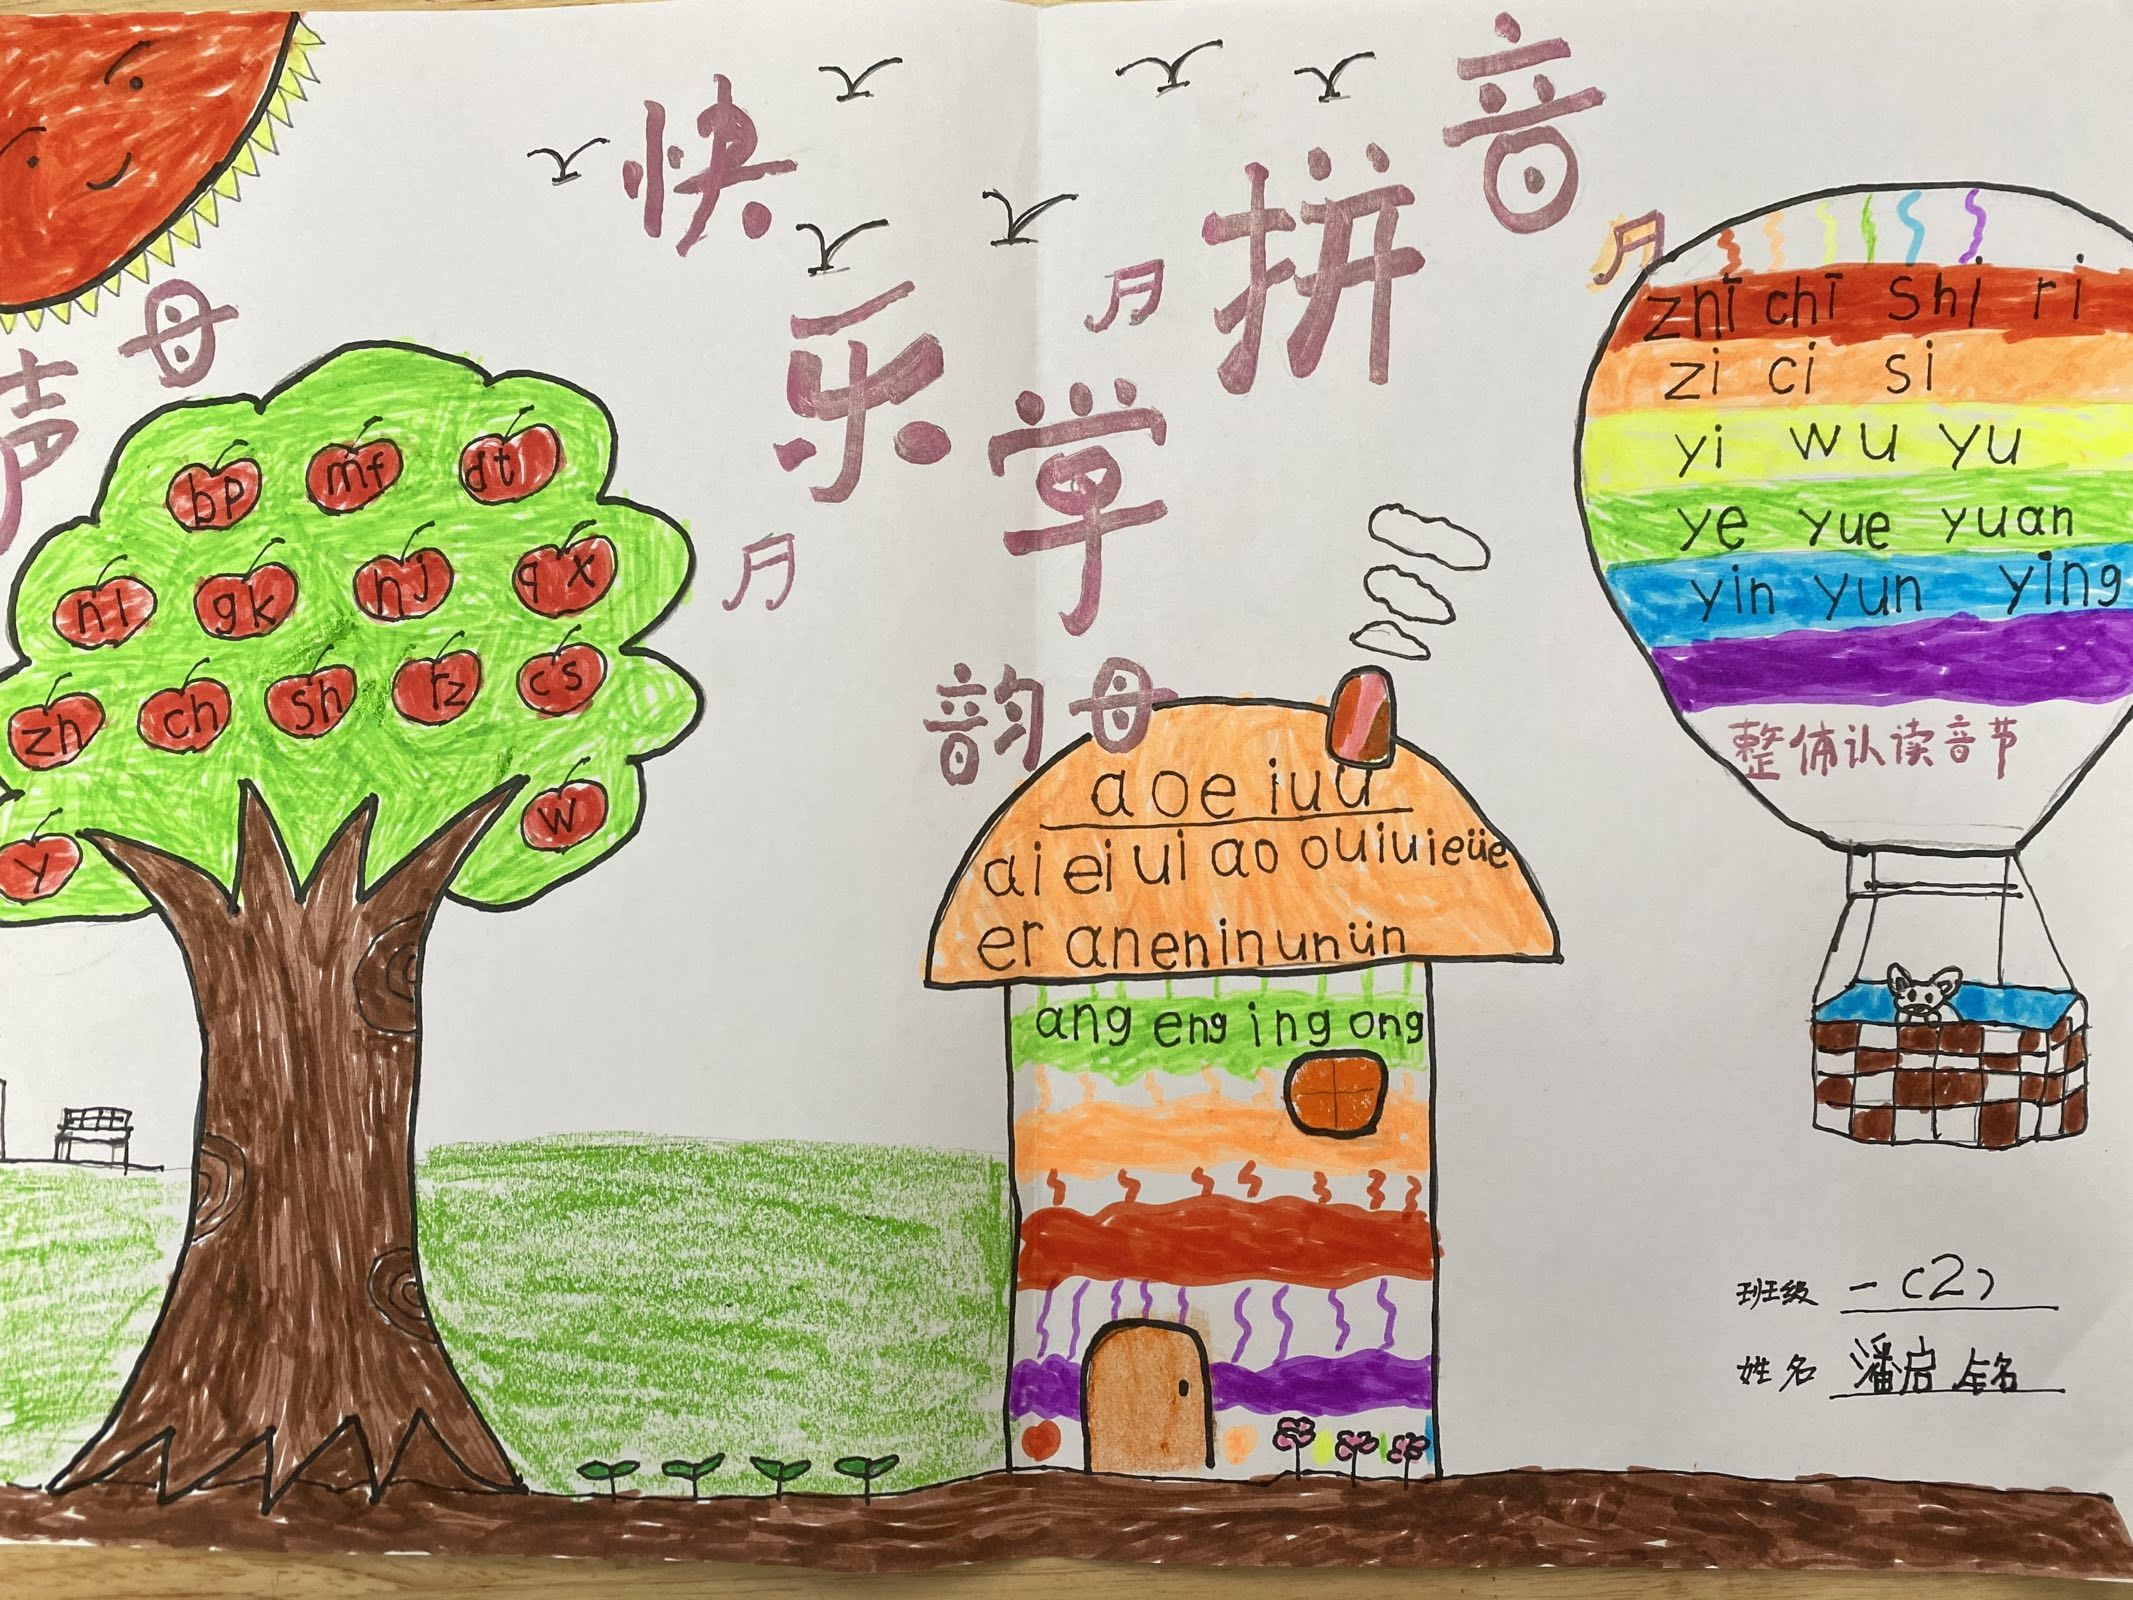 快乐学拼音
声母
bp mf dt
nl gk hj qx
zh ch sh rz cs
y w
韵母
a o e i u ü
ai ei ui ao ou iu ie üe
er an en in un ün
ang eng ing ong
zhi chi shi ri
zi ci si
yi wu yu
ye yue yuan
yin yun ying
整体认读音节
班级 一(2)
姓名 潘启铭